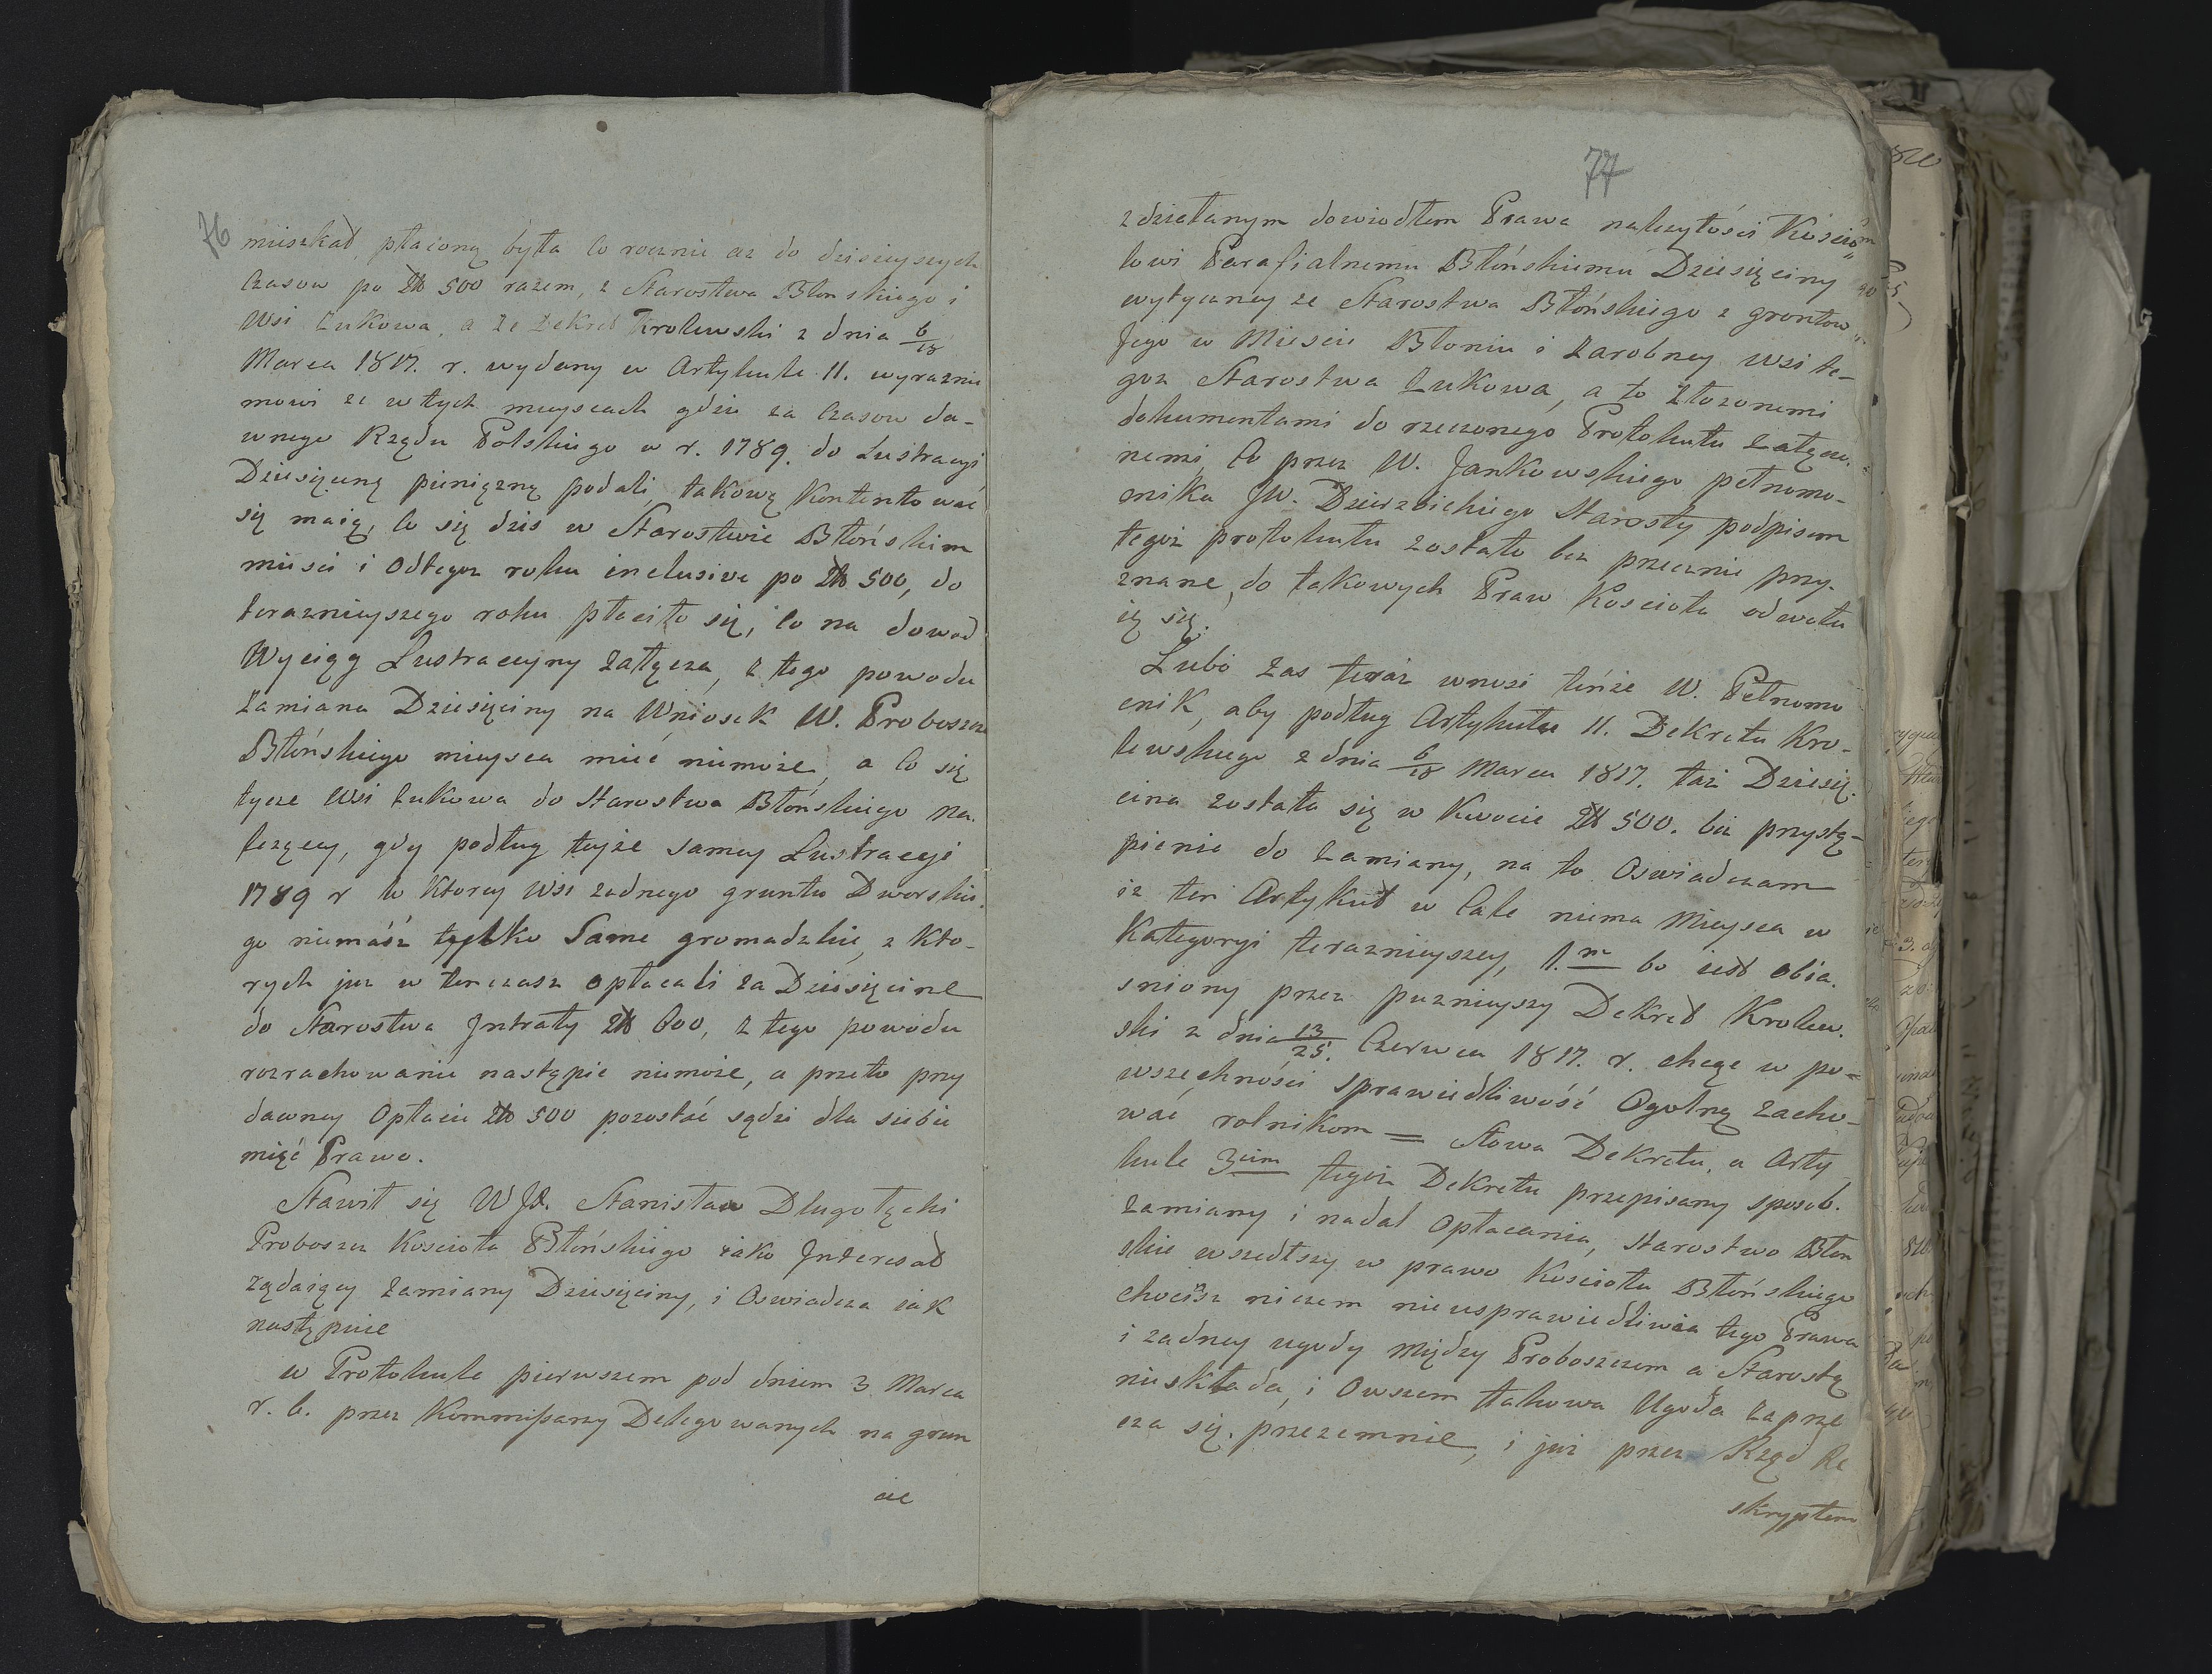 76
mieszkał, płaconą była Co rocznie az do dzisieyszych
Czasow po Zł 500 razem, z Starostwa Błonskiego i
Wsi Łukowa, a Ze Dekret Krolewski z dnia 6/18
Marca 1817. r. wydany w Artykule 11. wyraznie
mowi ze w tych mieyscach gdzie za Czasow da-
wnego Rządu Polskiego w r. 1789. do Lustracyi
Dziesięcinę pieniężną podali, takową Kontentować
się maią, Co się dzis w Starostwie Błońskim
miesci i Odtegoz roku inclusive po Zł 500, do
terazniejszego roku płaciło się, Co na dowod
Wyciąg Lustracyiny załącza, z tego powodu
Zamiana Dziesięciny na Wniosek W. Proboszcza
Błońskiego mieysca mieć niemoże, a Co się
tycze Wsi Łukowa do Starostwa Błońskiego na-
leżącey, gdy podług teyże samey Lustracyi
1789 r w Ktorey Wsi żadnego gruntu Dworskie-
go niemasz tylko Same gromadzkie, z Kto-
rych juz w ten czasz opłacali za Dziesięcine
do Starostwa Jntraty Zł 600, z tego powodu
rozrachowanie nastąpic niemoże, a przeto przy
dawney Opłacie Zł 500 pozostać sądzi dla siebie
mieć Prawo.
Stawił się W JX. Stanisław Długołęcki
Proboszcz Koscioła Błońskiego iako Jnteresat
żądaiący Zamiany Dziesięciny, i Oswiadcza iak
następuie
w Protokule pierwszem pod dniem 3 Marca
r. b. przez Kommissarzy Delegowanych na grun
cie
77
zdziałanym dowiodłem Prawa należytości Kościo„
łowi Parafialnemu Błońskiemu Dziesięciny
wytyczney ze Starostwa Błońskiego z grontow„
Jego w Miescie Błoniu i Zarobney wsi te-
goz Starostwa Łukowa, a to Złozonemi
dokumentami do rzeczonego Protokułu Załączo-
nemi, Co przez W. Jankowskiego pełnomo-
cnika JW. Dzierzbickiego Starosty podpisem
tegoz protokułu zostało bez przecznie przy-
znane, do takowych Praw Koscioła odwołu
ię się.
Lubo zas teraz wnosi tenże W. Pełnomo
cnik, aby podług Artykułu 11. Dekretu Kro-
lewskiego z dnia 6/18 Marca 1817. taz Dziesię-
cina została się w Kwocie Zł 500. bez przystą-
pienie do Zamiany, na to Oswiadczam
iz ten Artykuł w Cale niema Mieysca w
Kategoryi terazniejszey, 1.m bo iest obia-
sniony przez puzniejszy Dekret Krolew-
ski z dnia 13/25. Czerwca 1817. r. chcąc w po-
wszechności sprawiedliwość Ogolną zacho-
wać rolnikom = Słowa Dekretu, a Arty
kule 3cim tegoz Dekretu przepisany sposob.
Zamiany i nadal Opłacania, Starostwo Błon
skie wszedłszy w prawo Koscioła Błońskiego
chociasz niczem nieusprawiedliwia tego Prawa
i zadney ugody między Proboszczem a Starostą
nieskłada, i Owszem takowa Ugoda zaprze
cza się. przezemnie, i juz przez Rząd Re
skryptem